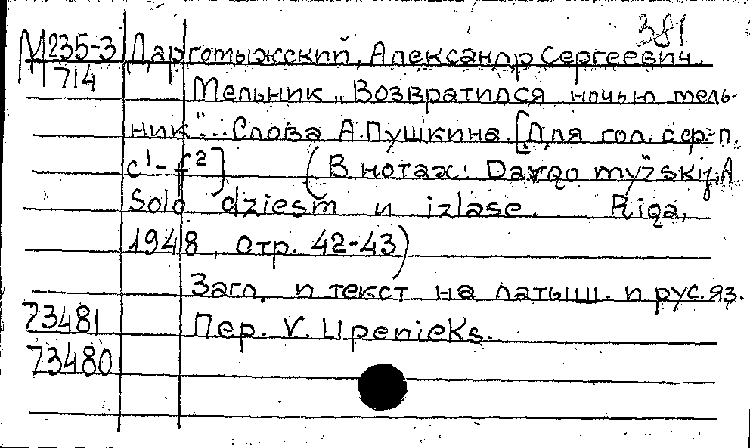 381
М235-3 Даргомыжский, Александр Сергеевич.
714
Мельник „Возвратился ночью мель-
ник"... Слова А.Пушкина. [Для гол. с ф-п.
c¹-f²] (В нотах: Dargomyžskij, A
Solo dziesm u izlase. Riga,
1948, стр. 42-43)
Загл. и текст на латыш. и рус.яз.
73481 Пер. V. Upenieks.
73480